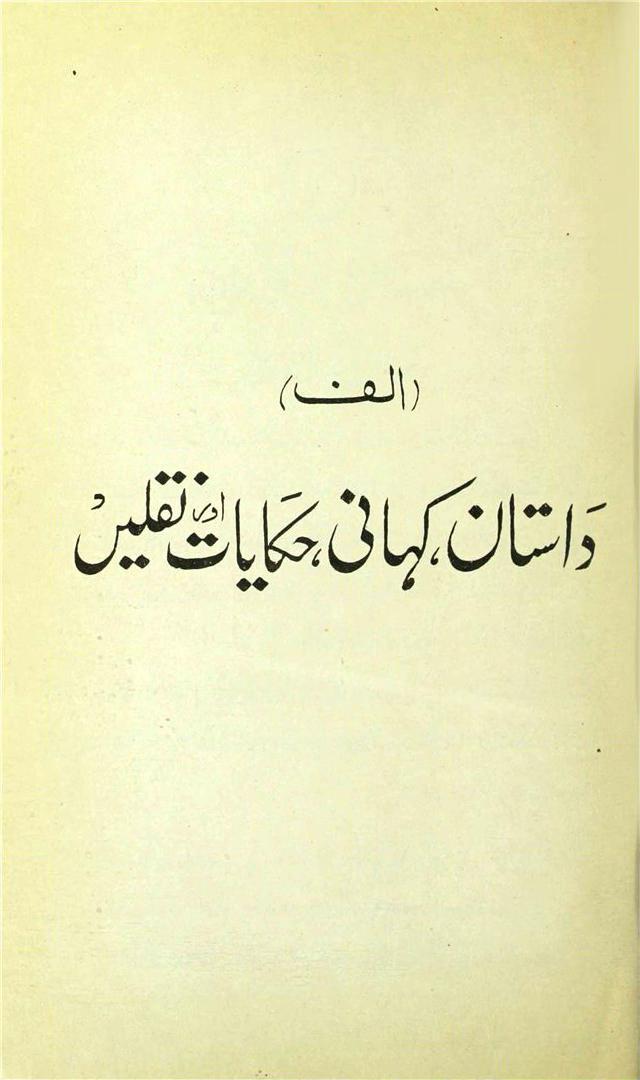 (الف)
داستان، کہانی، حکایات اور نقلیں